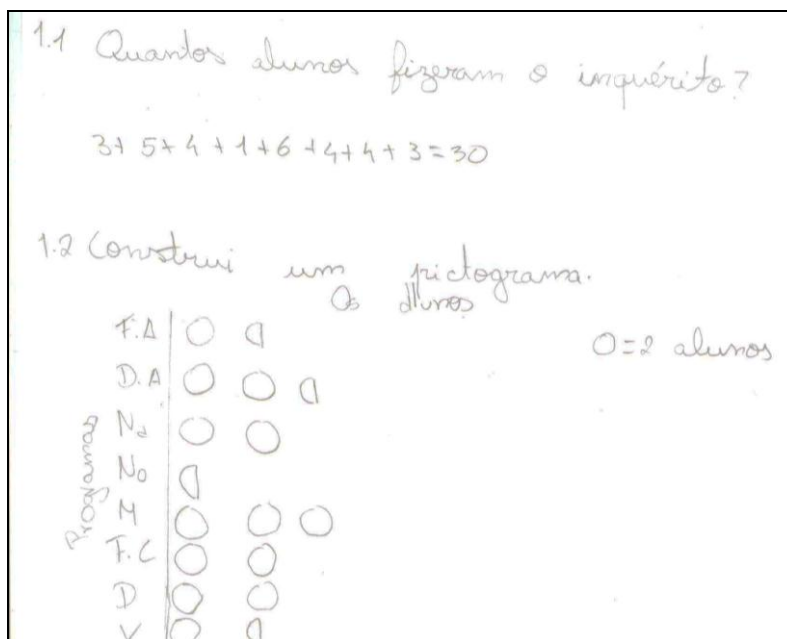 1.1 Quantos alunos fizeram o inquérito?
3+ 5+ 4 + 1 + 6 + 4 + 4 + 3 = 30
1.2 Construi um pictograma.
Os alunos
O=2 alunos
Programas
F.A
D.A
Na
No
M
F.C
D
V